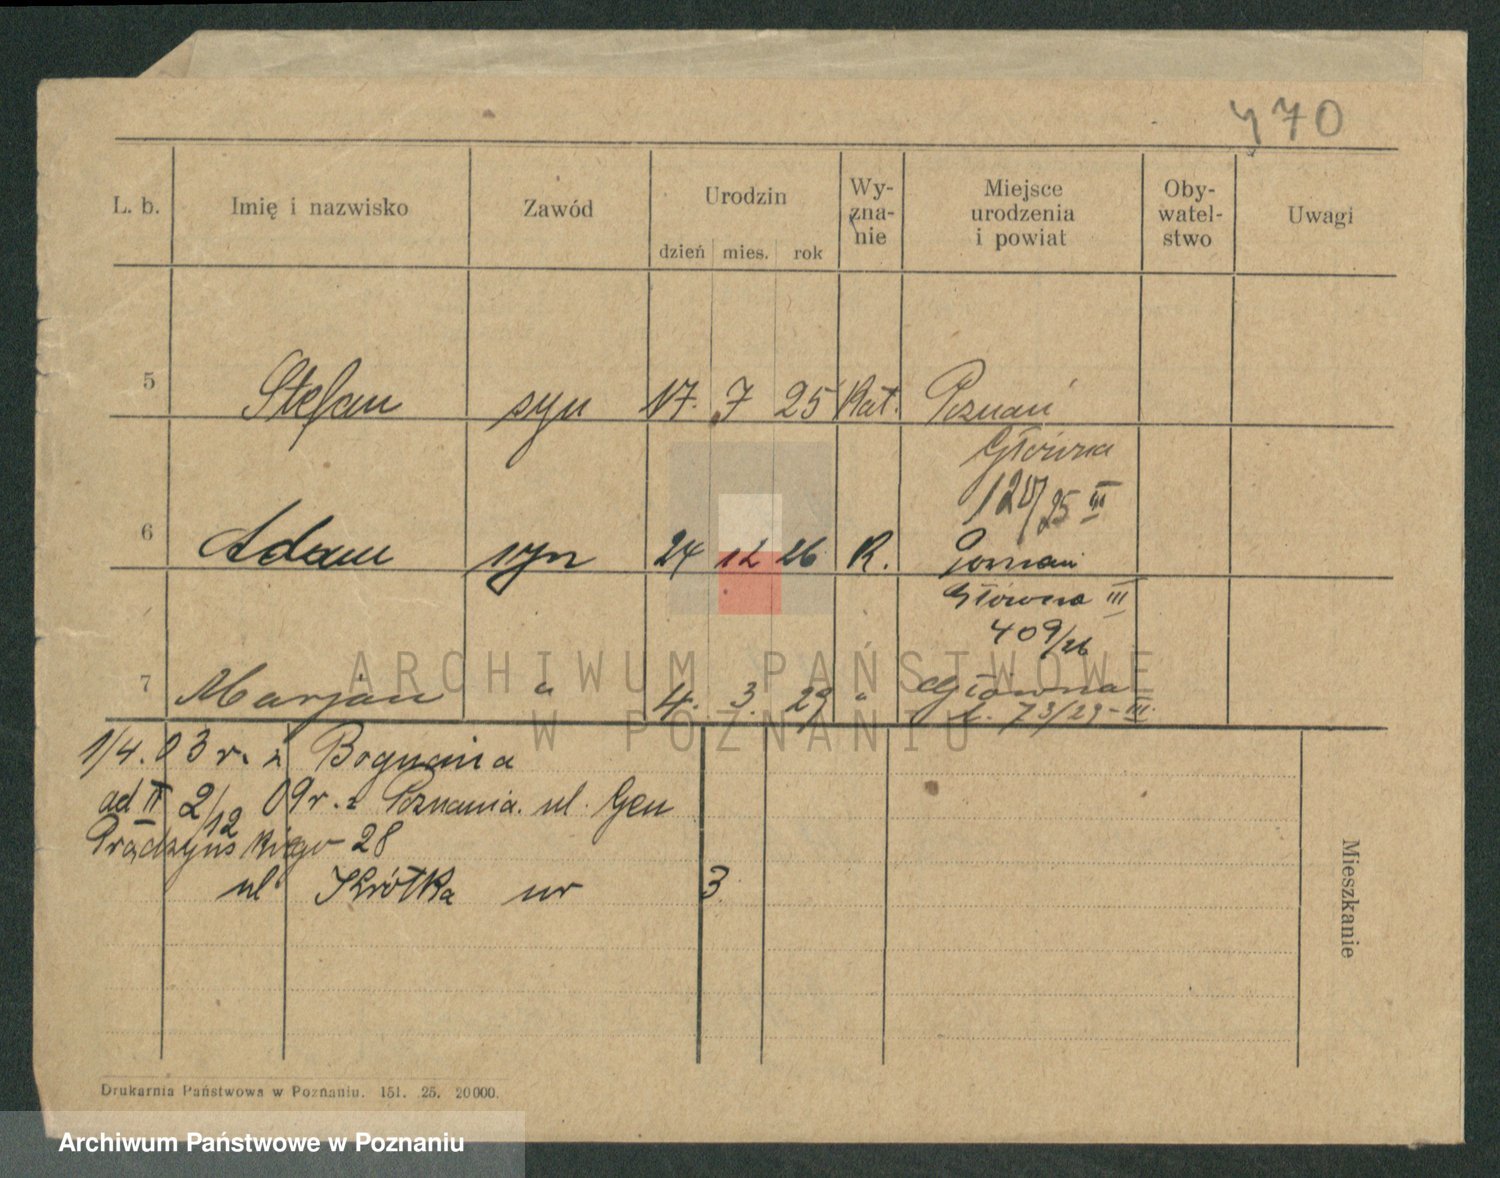 470
L. b. Imię i nazwisko Zawód Urodzin dzień mies. rok Wy-zna-nie Miejsce urodzenia i powiat Oby-watel-stwo Uwagi
5 Stefan syn 17. 7 25 Kat. Poznań
Główna
120/25 III
6 Adam syn 24 12 26 R. Poznań
Główna III
409/26
7 Marjan " 4. 3. 29 " Główna
L. 73/29-III.
1/4. 03 r. z Bognania
ad II 2/12 09 r. z Poznania. ul. Gen
Prądzyńskiego 28
ul Krótka nr 3
Mieszkanie
Drukarnia Państwowa w Poznaniu. 151. 25. 20000.
ARCHIWUM PAŃSTWOWE
W POZNANIU
Archiwum Państwowe w Poznaniu